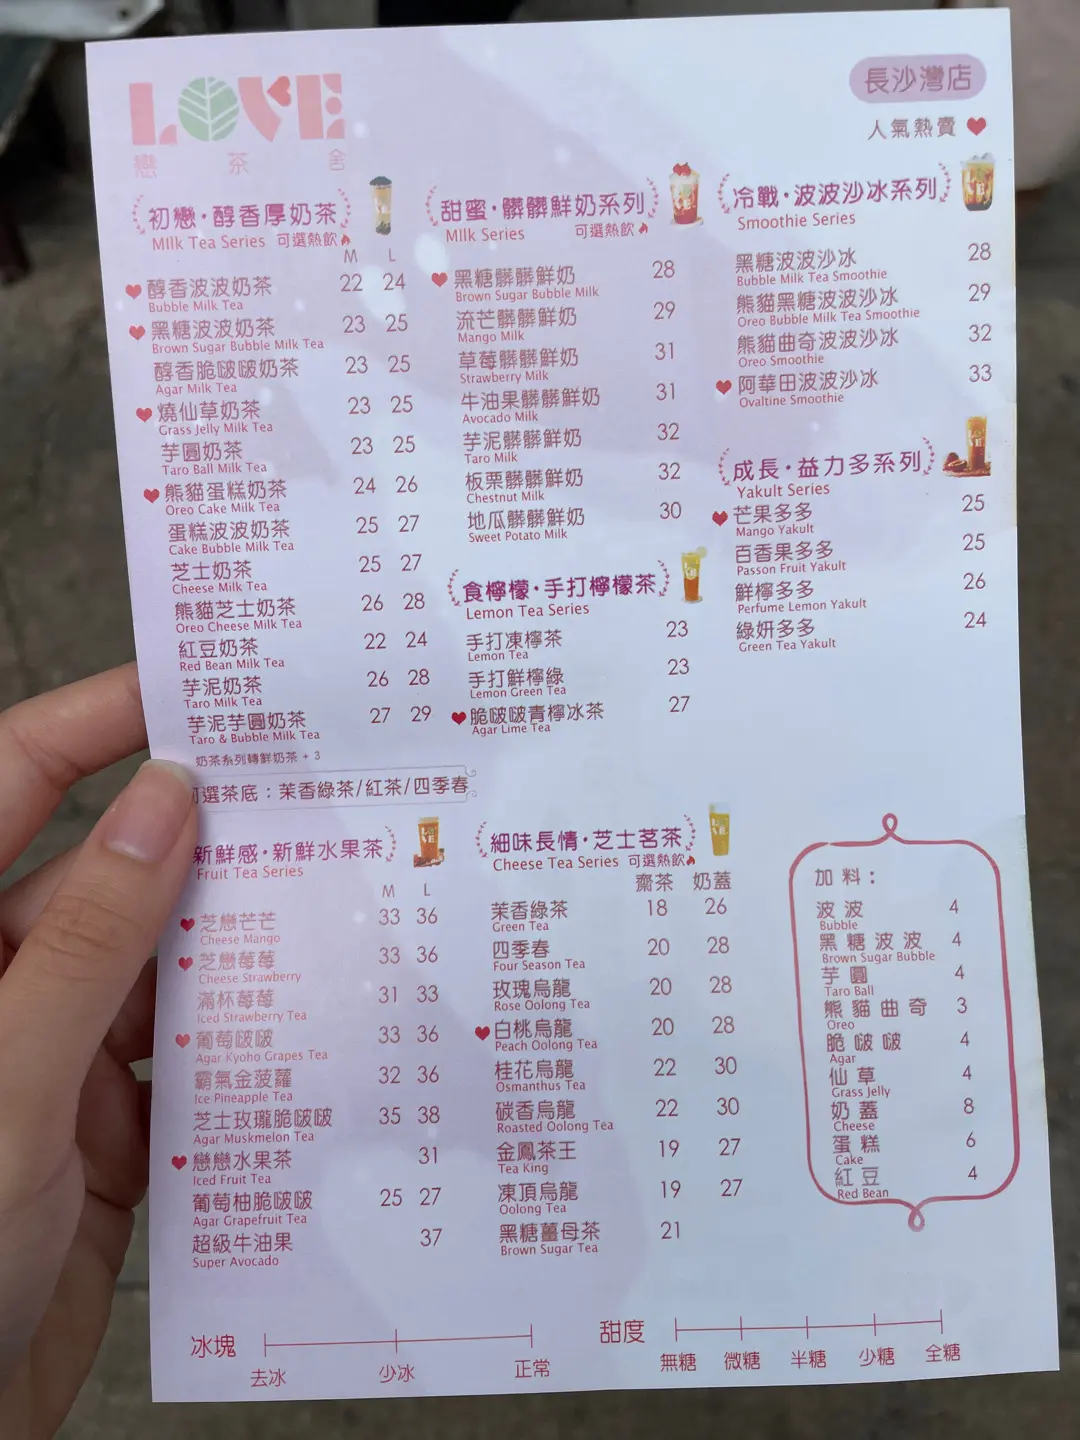 LOVE
戀 茶 舍
長沙灣店
人氣熱賣
初戀·醇香厚奶茶
MIlk Tea Series 可選熱飲
M L
醇香波波奶茶 22 24
Bubble Milk Tea
黑糖波波奶茶 23 25
Brown Sugar Bubble Milk Tea
醇香脆啵啵奶茶 23 25
Agar Milk Tea
燒仙草奶茶 23 25
Grass Jelly Milk Tea
芋圓奶茶 23 25
Taro Ball Milk Tea
熊貓蛋糕奶茶 24 26
Oreo Cake Milk Tea
蛋糕波波奶茶 25 27
Cake Bubble Milk Tea
芝士奶茶 25 27
Cheese Milk Tea
熊貓芝士奶茶 26 28
Oreo Cheese Milk Tea
紅豆奶茶 22 24
Red Bean Milk Tea
芋泥奶茶 26 28
Taro Milk Tea
芋泥芋圓奶茶 27 29
Taro & Bubble Milk Tea
奶茶系列轉鮮奶茶 + 3
選茶底：茉香綠茶/紅茶/四季春
甜蜜·髒髒鮮奶系列
MIlk Series 可選熱飲
黑糖髒髒鮮奶 28
Brown Sugar Bubble Milk
流芒髒髒鮮奶 29
Mango Milk
草莓髒髒鮮奶 31
Strawberry Milk
牛油果髒髒鮮奶 31
Avocado Milk
芋泥髒髒鮮奶 32
Taro Milk
板栗髒髒鮮奶 32
Chestnut Milk
地瓜髒髒鮮奶 30
Sweet Potato Milk
食檸檬·手打檸檬茶
Lemon Tea Series
手打凍檸茶 23
Lemon Tea
手打鮮檸綠 23
Lemon Green Tea
脆啵啵青檸冰茶 27
Agar Lime Tea
冷戰·波波沙冰系列
Smoothie Series
黑糖波波沙冰 28
Bubble Milk Tea Smoothie
熊貓黑糖波波沙冰 29
Oreo Bubble Milk Tea Smoothie
熊貓曲奇波波沙冰 32
Oreo Smoothie
阿華田波波沙冰 33
Ovaltine Smoothie
成長·益力多系列
Yakult Series
芒果多多 25
Mango Yakult
百香果多多 25
Passon Fruit Yakult
鮮檸多多 26
Perfume Lemon Yakult
綠妍多多 24
Green Tea Yakult
新鮮感·新鮮水果茶
Fruit Tea Series
M L
芝戀芒芒 33 36
Cheese Mango
芝戀莓莓 33 36
Cheese Strawberry
滿杯莓莓 31 33
Iced Strawberry Tea
葡萄啵啵 33 36
Agar Kyoho Grapes Tea
霸氣金菠蘿 32 36
Ice Pineapple Tea
芝士玫瓏脆啵啵 35 38
Agar Muskmelon Tea
戀戀水果茶 31
Iced Fruit Tea
葡萄柚脆啵啵 25 27
Agar Grapefruit Tea
超級牛油果 37
Super Avocado
細味長情·芝士茗茶
Cheese Tea Series 可選熱飲
齋茶 奶蓋
茉香綠茶 18 26
Green Tea
四季春 20 28
Four Season Tea
玫瑰烏龍 20 28
Rose Oolong Tea
白桃烏龍 20 28
Peach Oolong Tea
桂花烏龍 22 30
Osmanthus Tea
碳香烏龍 22 30
Roasted Oolong Tea
金鳳茶王 19 27
Tea King
凍頂烏龍 19 27
Oolong Tea
黑糖薑母茶 21
Brown Sugar Tea
加料：
波波 4
Bubble
黑糖波波 4
Brown Sugar Bubble
芋圓 4
Taro Ball
熊貓曲奇 3
Oreo
脆啵啵 4
Agar
仙草 4
Grass Jelly
奶蓋 8
Cheese
蛋糕 6
Cake
紅豆 4
Red Bean
冰塊
去冰 少冰 正常
甜度
無糖 微糖 半糖 少糖 全糖